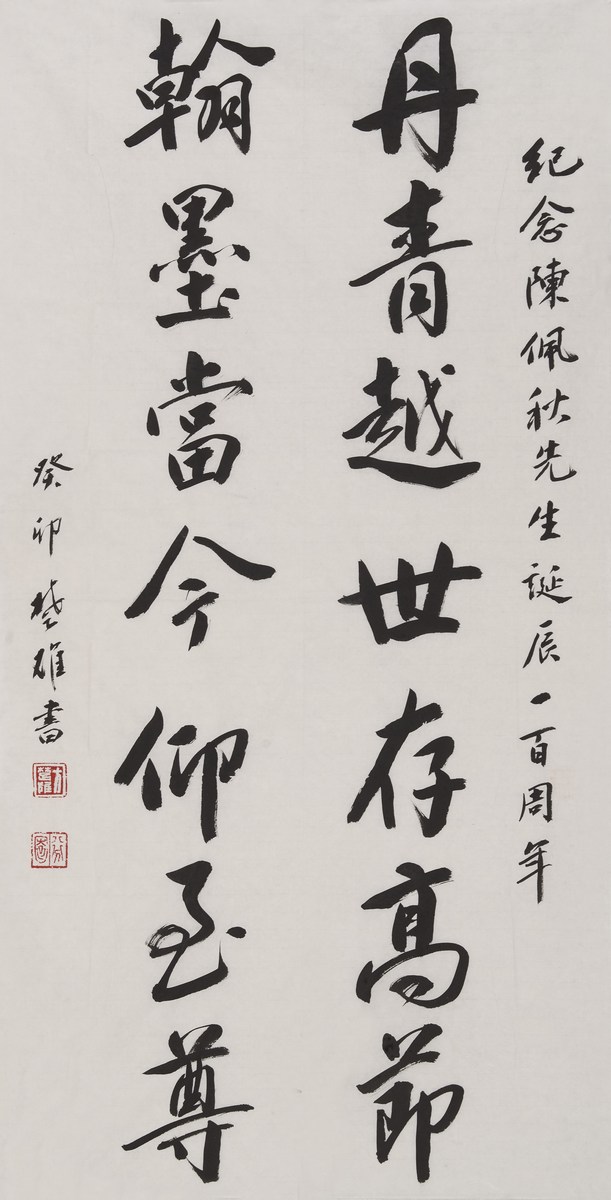 紀念陳佩秋先生誕辰一百周年
丹青越世存高節
翰墨當今仰至尊
癸卯 楚雄書